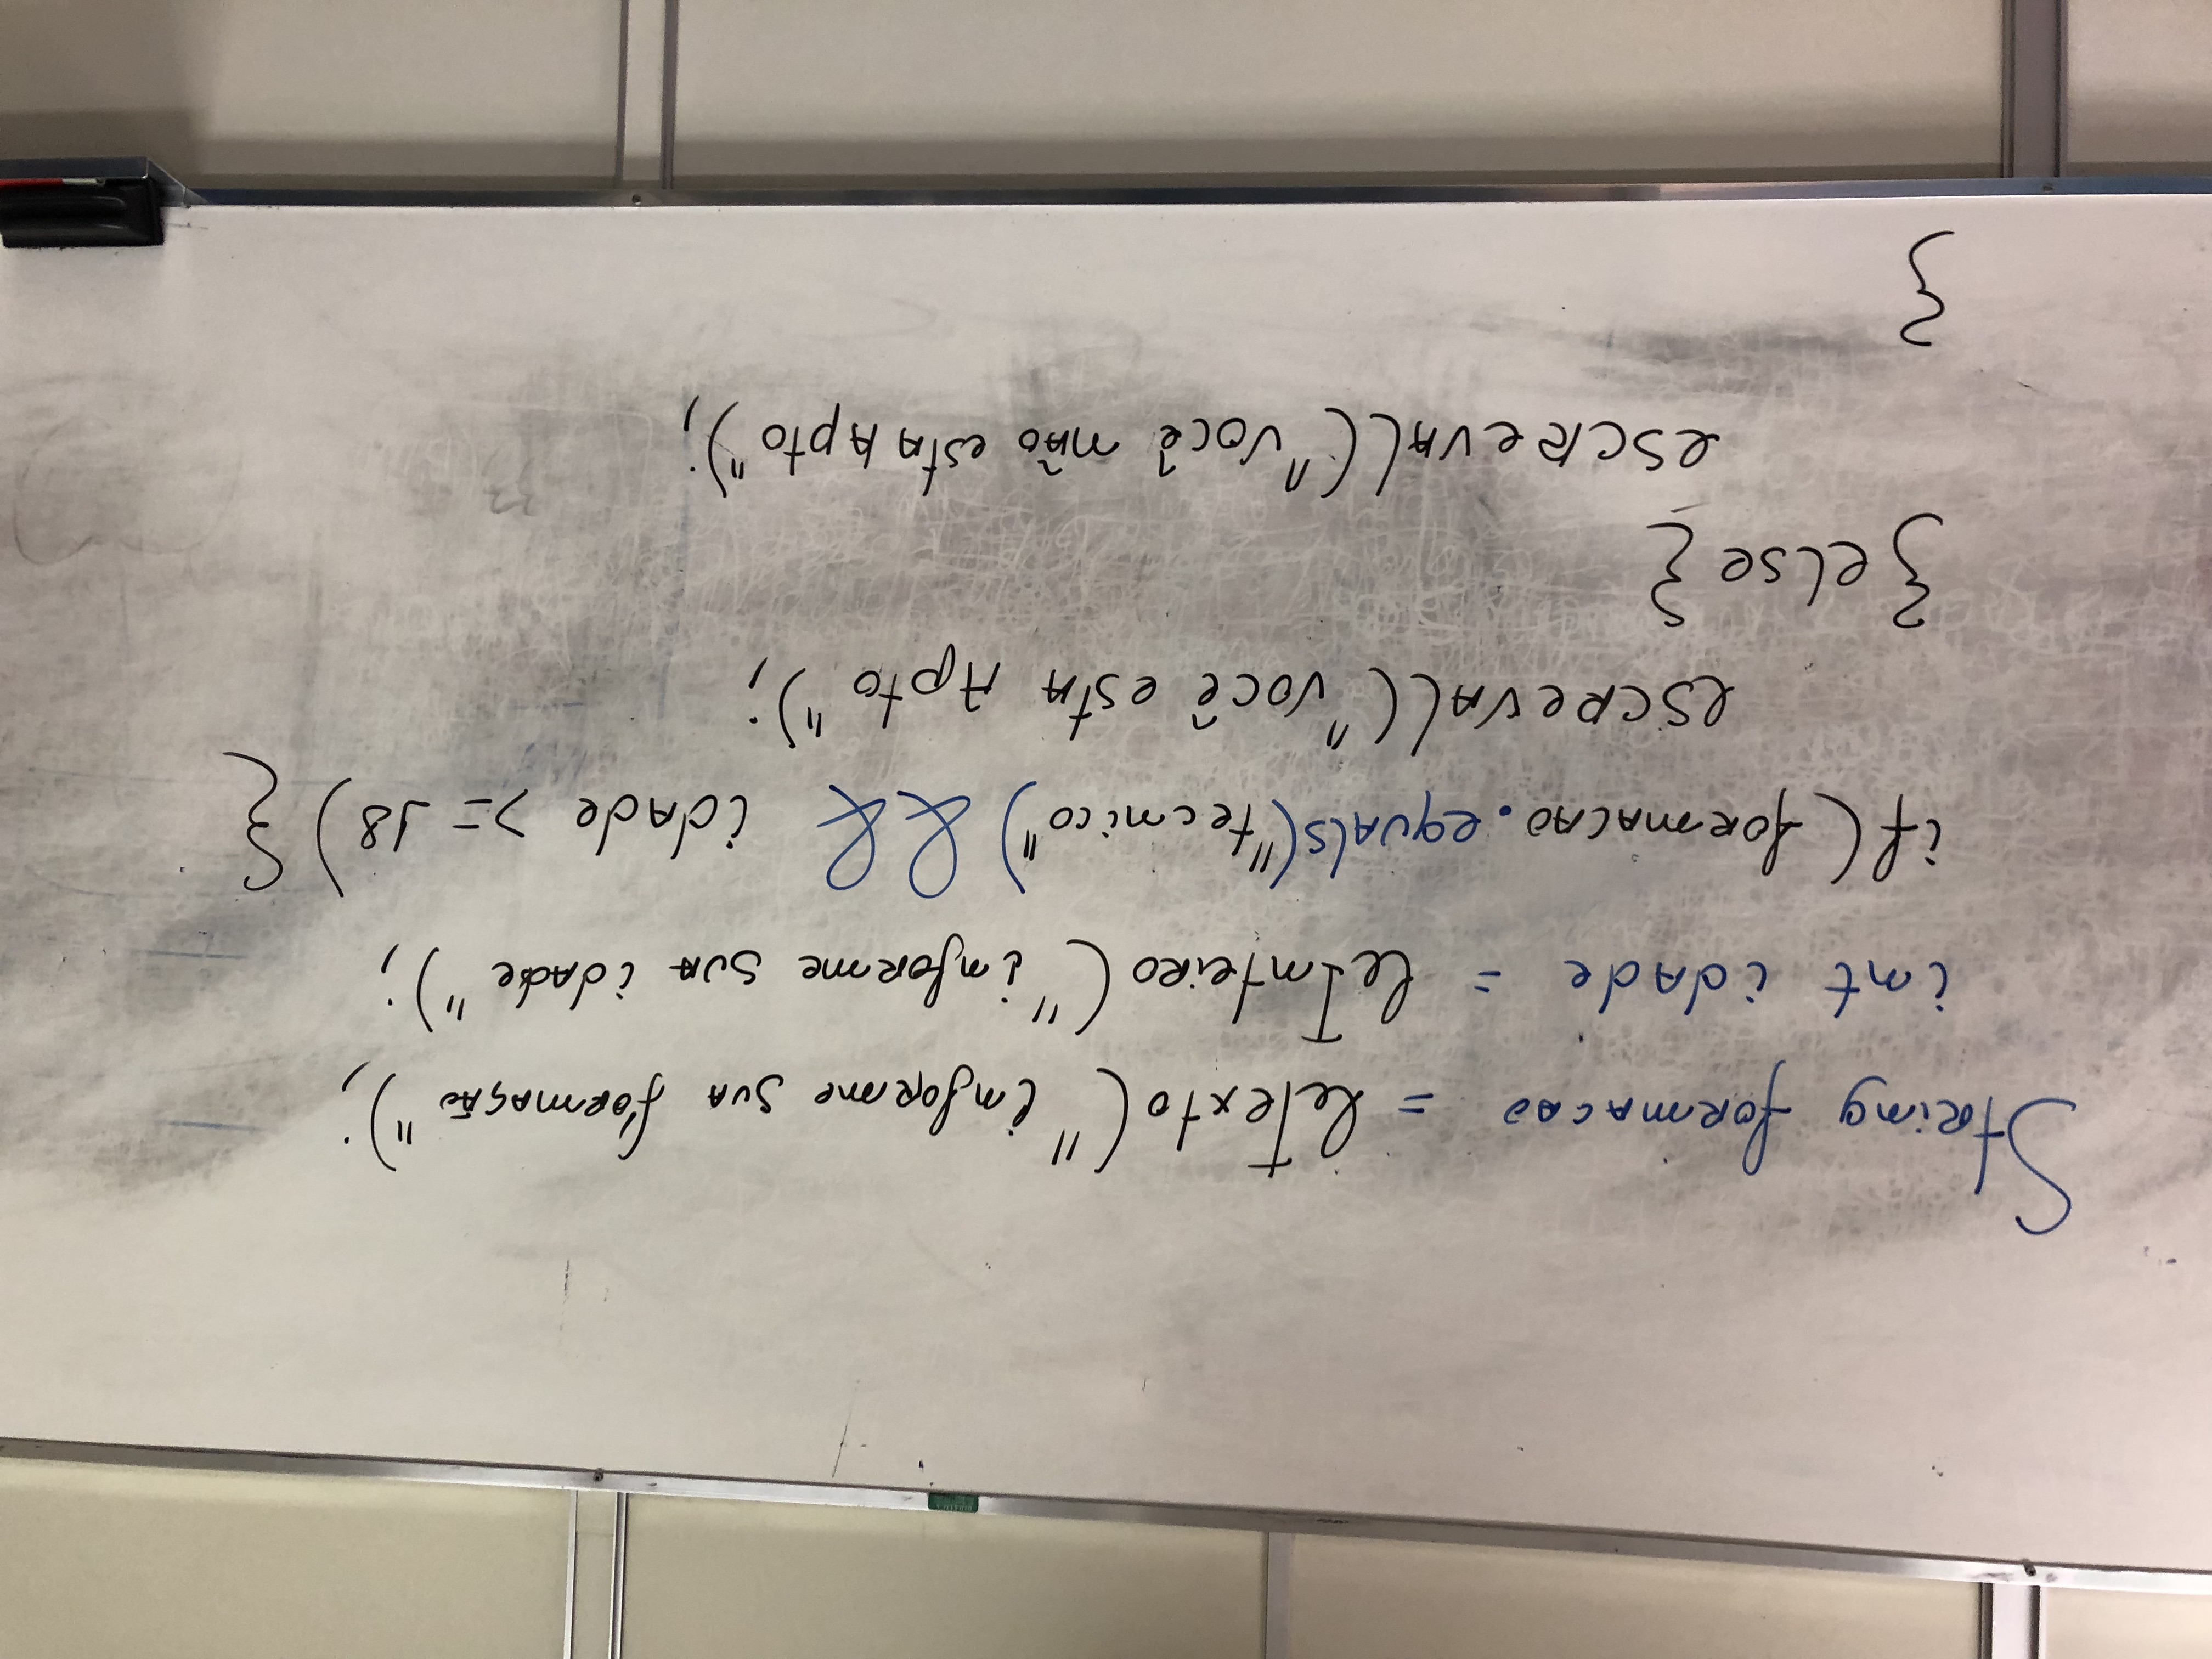 String formacao = leTexto("informe sua formação");
int idade = leInteiro("informe sua idade");
if(formacao.equals("tecnico") && idade >= 18){
escreval("você esta Apto");
}else{
escreval("você não esta Apto");
}